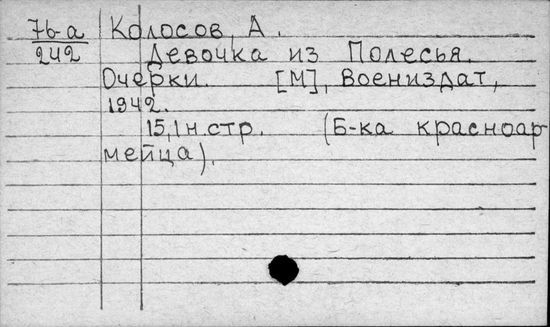 76-а Колосов, А.
242 Девочка из Полесья.
Очерки. [М], Воениздат,
1942.
15,1 н.стр. (Б-ка красноар
мейца).